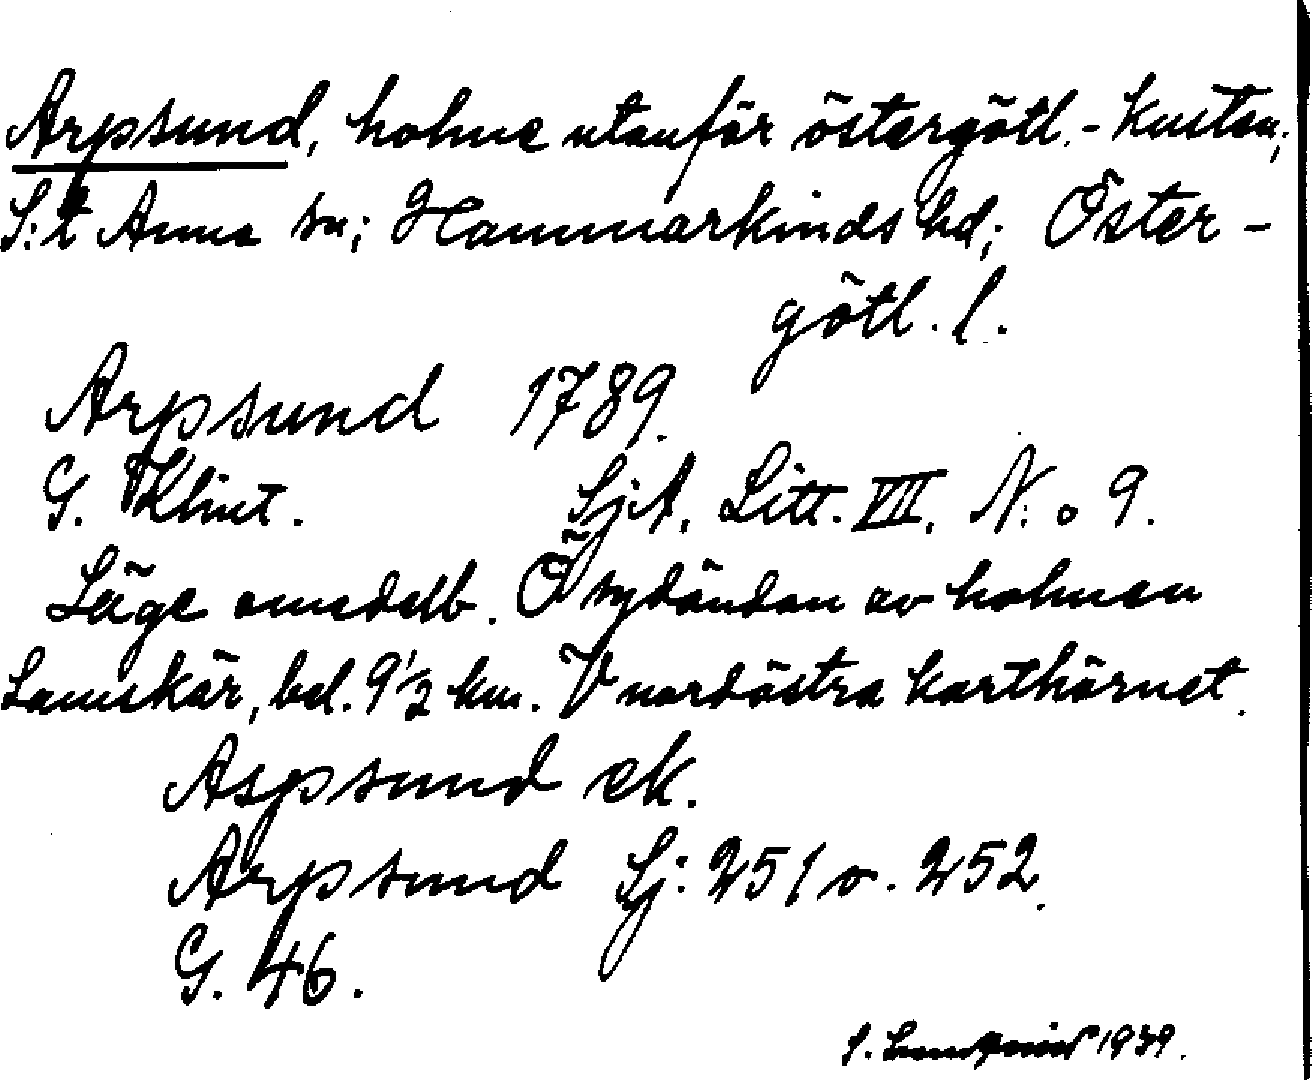 Arpsund, holme utanför östergötl.-kusten;
S:t Anna sn; Hammarkinds hd; Öster-
götl. l.
Arpsund 1789.
G. Klint. SjA. Litt. VII. N:o 9.
Läge omedelb. Ö sydändan av holmen
Lamskär, bel. 9 1/2 km. V nordöstra karthörnet.
Aspsund ek.
Arpsund Sj: 251 o. 252.
G. 46.
S. 1939.